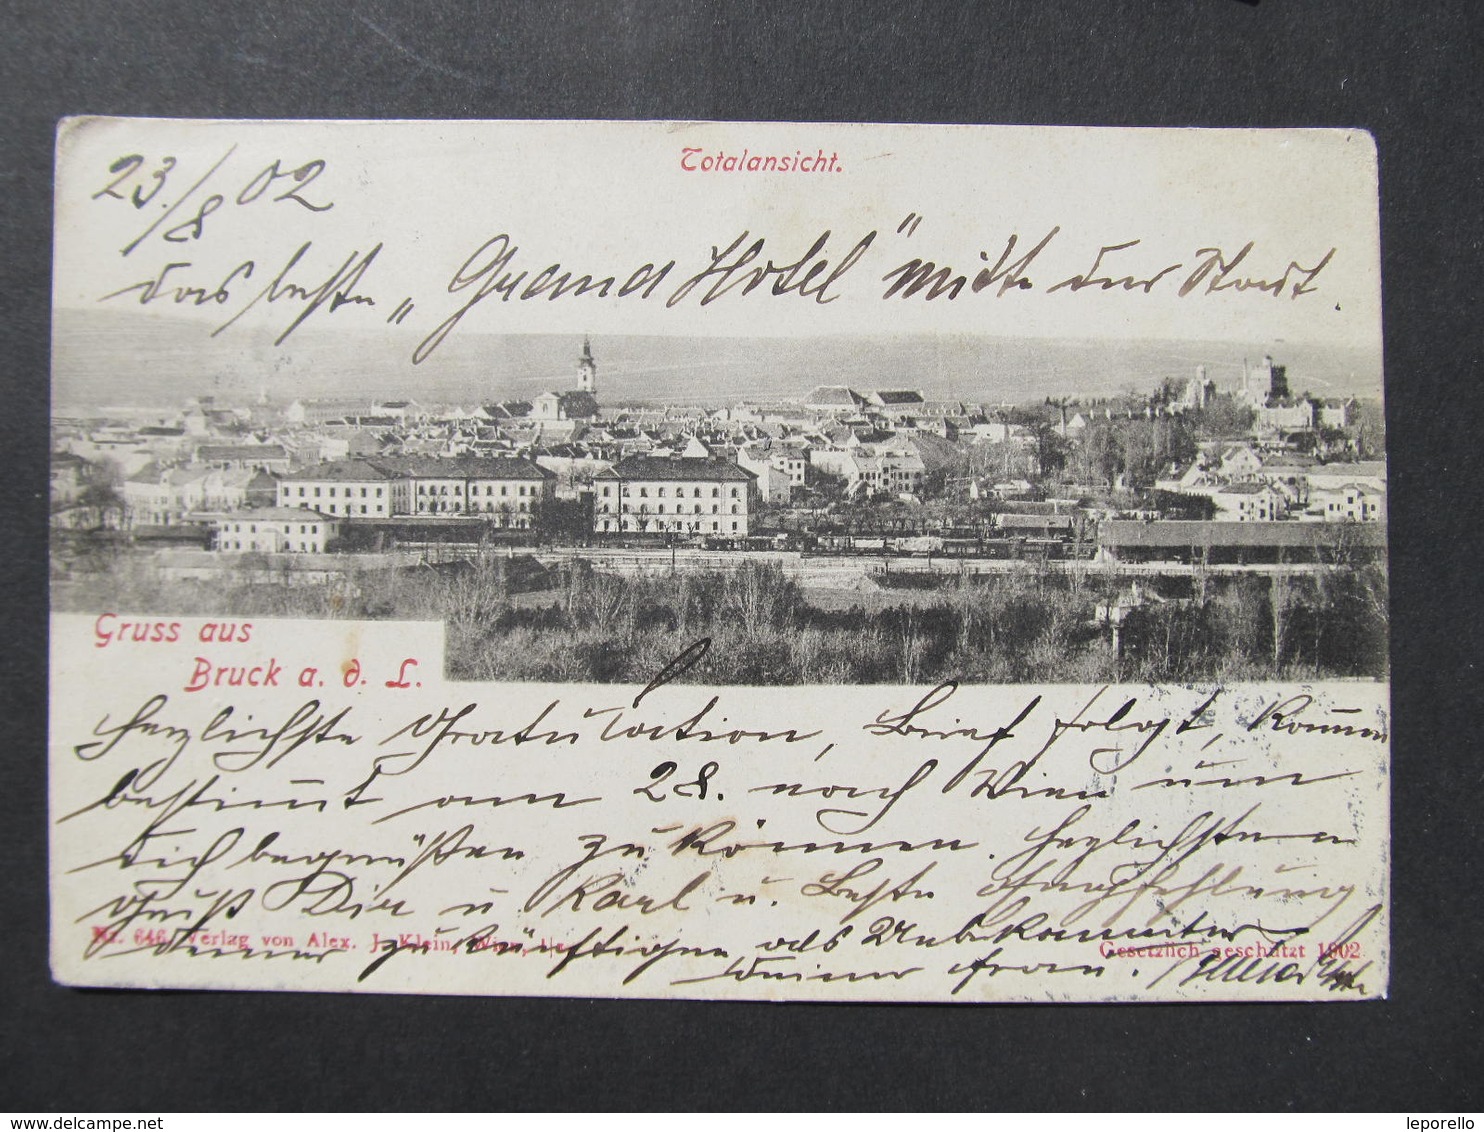 Totalansicht.
23./8 02
das beste „Grand Hotel" mitte der Stadt.
Gruss aus
Bruck a. d. L.
Herzlichste Gratulation, Brief folgt, komme
bestimmt am 28. nach Wien um
dich begrüßen zu können. Herzlichsten
Gruß Dir u Karl u. Beste
Nr. 646, Verlag von Alex. J. Klein, Wien,
Gesetzlich geschützt 1902
deiner zukünftigen als Unbekannter
deiner Frau.
leporello
delcampe.net